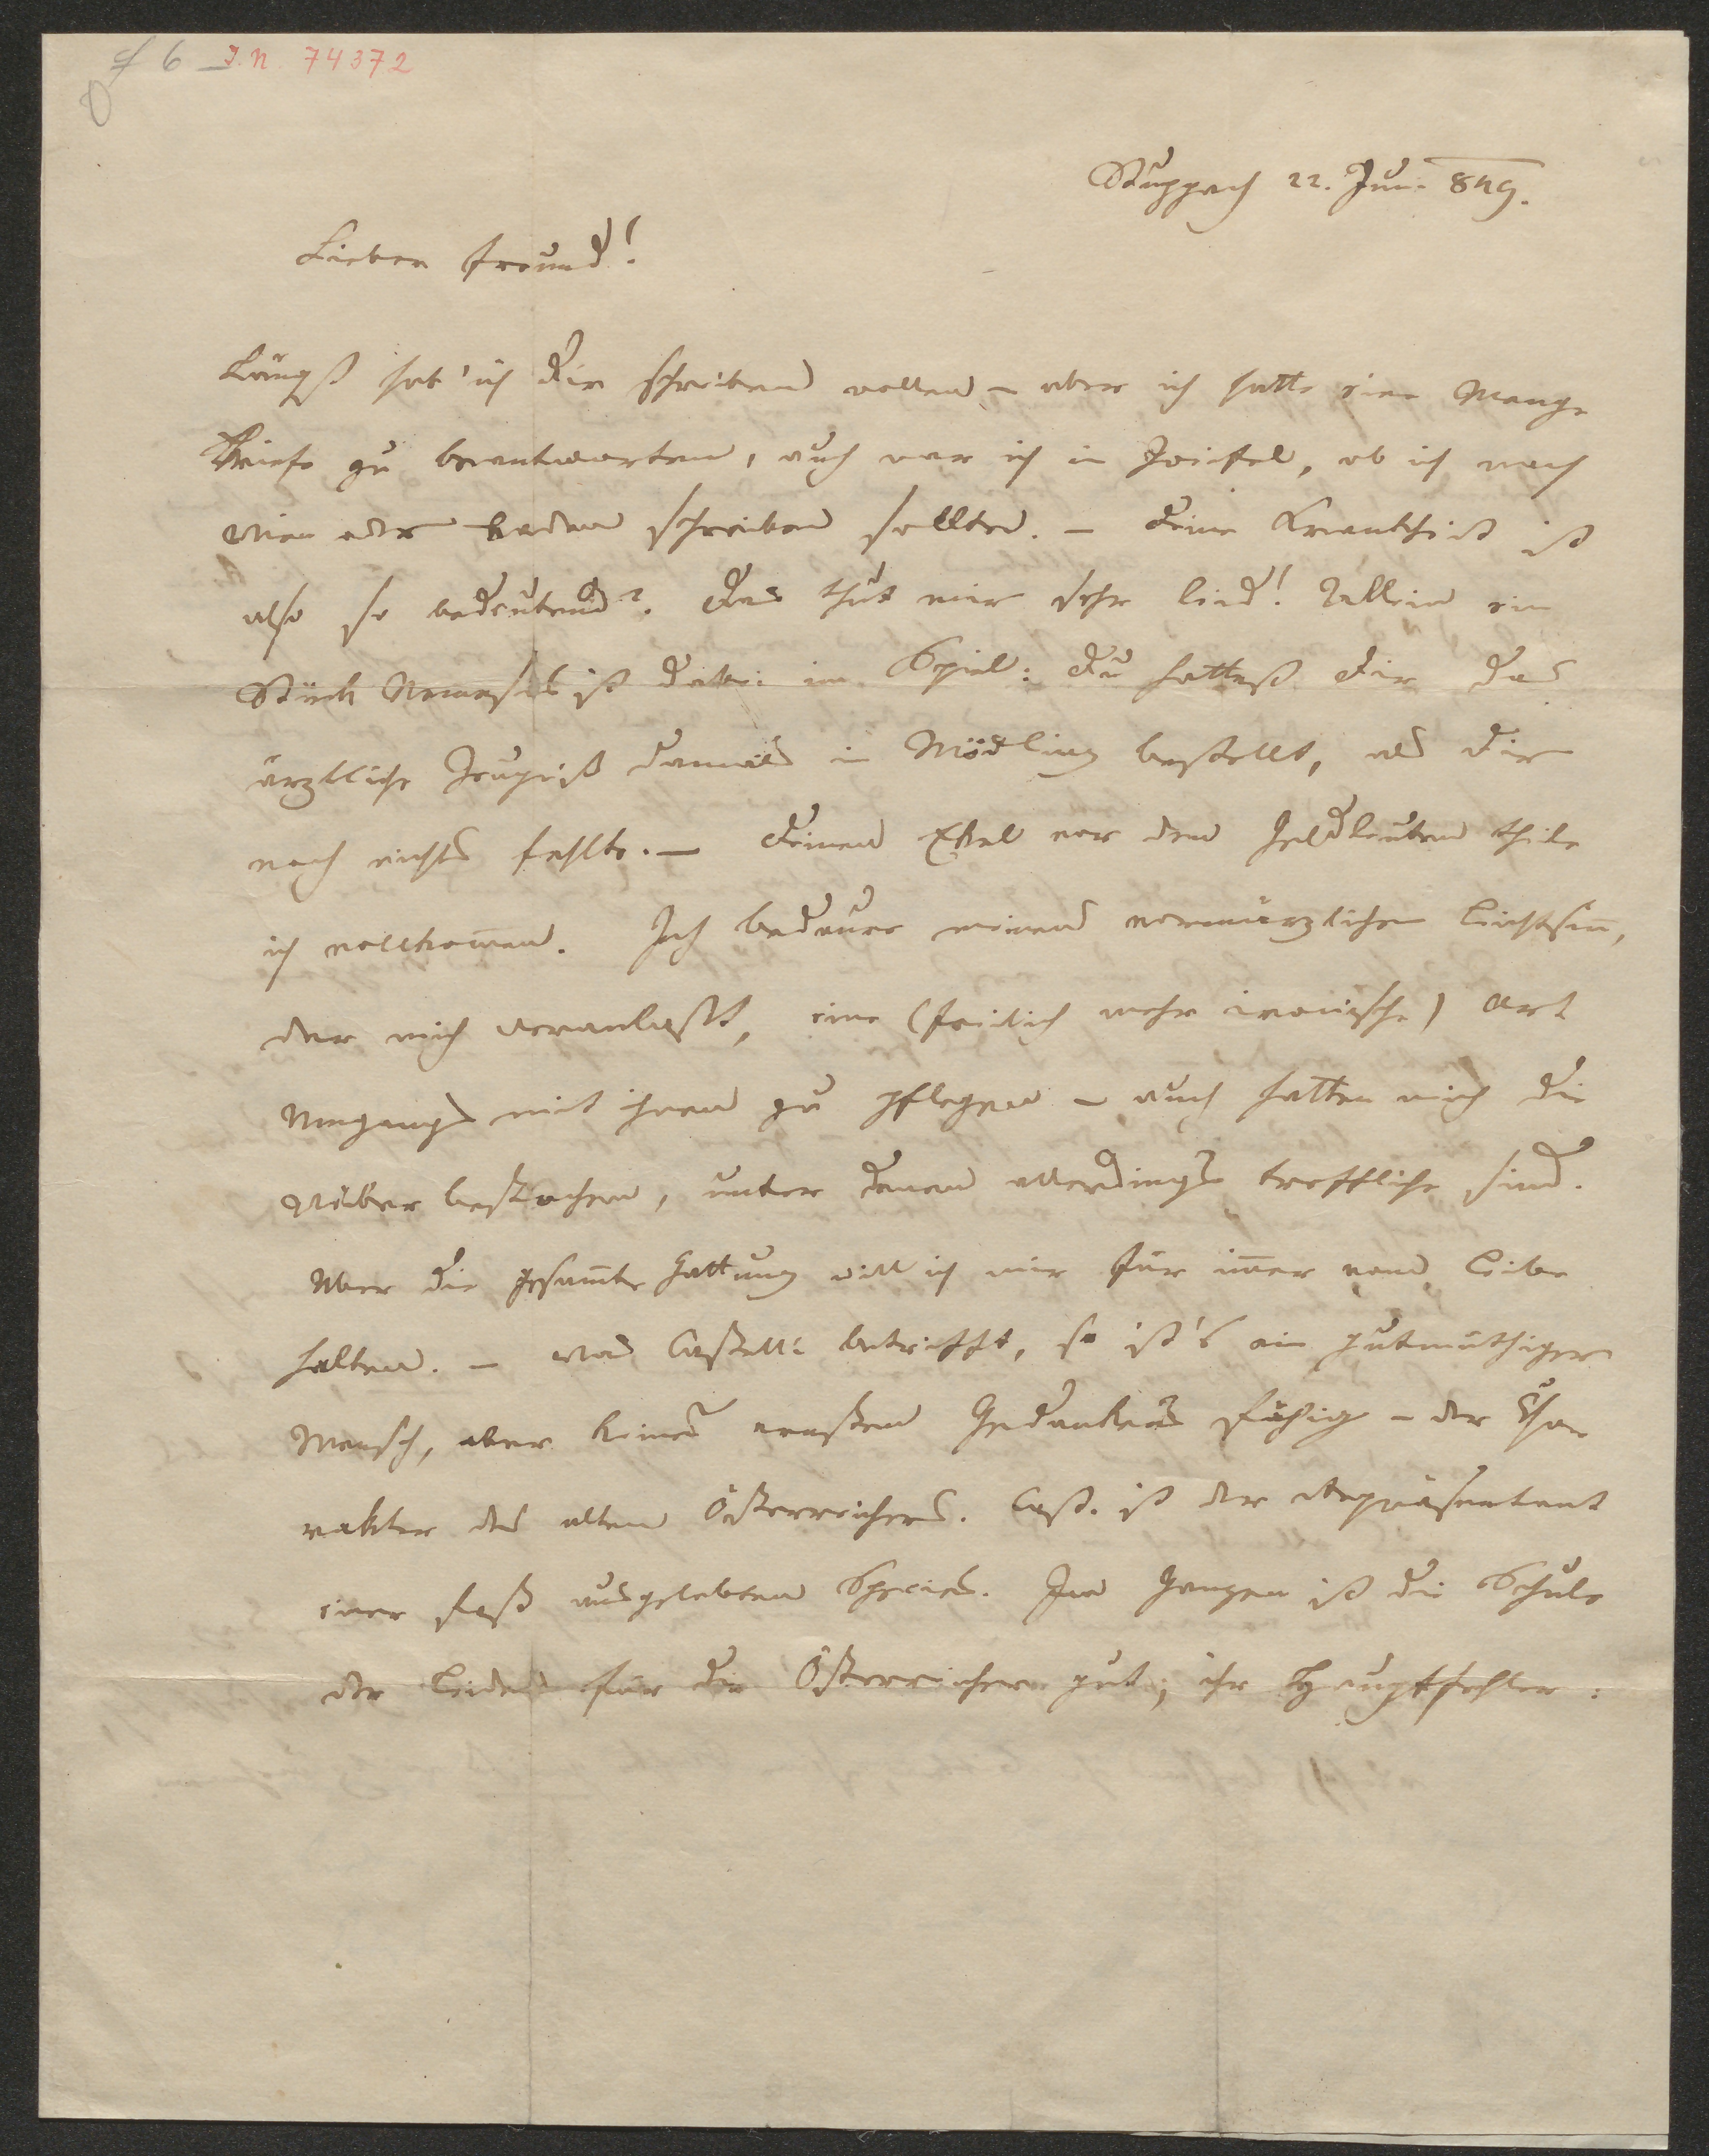 I.N. 74372
Stuppach 22. Jun. 849.
Lieber Freund!
Längst hab' ich Dir schreiben wollen – aber ich hatte eine Menge
Briefe zu beantworten, auch war ich in Zweifel, ob ich nach
Wien oder Baden schreiben sollte. – Deine Krankheit ist
also so bedeutend? Das thut mir sehr leid! Allein ein
Stück Nemesis ist dabei im Spiel: Du hattest Dir das
ärztliche Zeugniß damals in Mödling bestellt, als Dir
noch nichts fehlte. – Deinen Ekel vor den Geldleuten theile
ich vollkom̅en. Ich bedaure meinen vormärzlichen Leichtsin̅,
der mich veranlaßt, eine (freilich mehr ironische) Art
Umgangs mit ihnen zu pflegen – auch hatten mich die
Weiber bestochen, unter denen allerdings treffliche sind.
Aber die gesam̅te Gattung will ich mir für im̅er vom Leibe
halten. – Was Castelli betrifft, so ist's ein gutmüthiger
Mensch, aber keines ernsten Gedankens fähig – der Cha
rakter des alten Österreichers. Cast. ist der Repräsentant
einer fast ausgelebten Species. Im Ganzen ist die Schule
der Leiden für die Österreicher gut; ihr Hauptfehler: